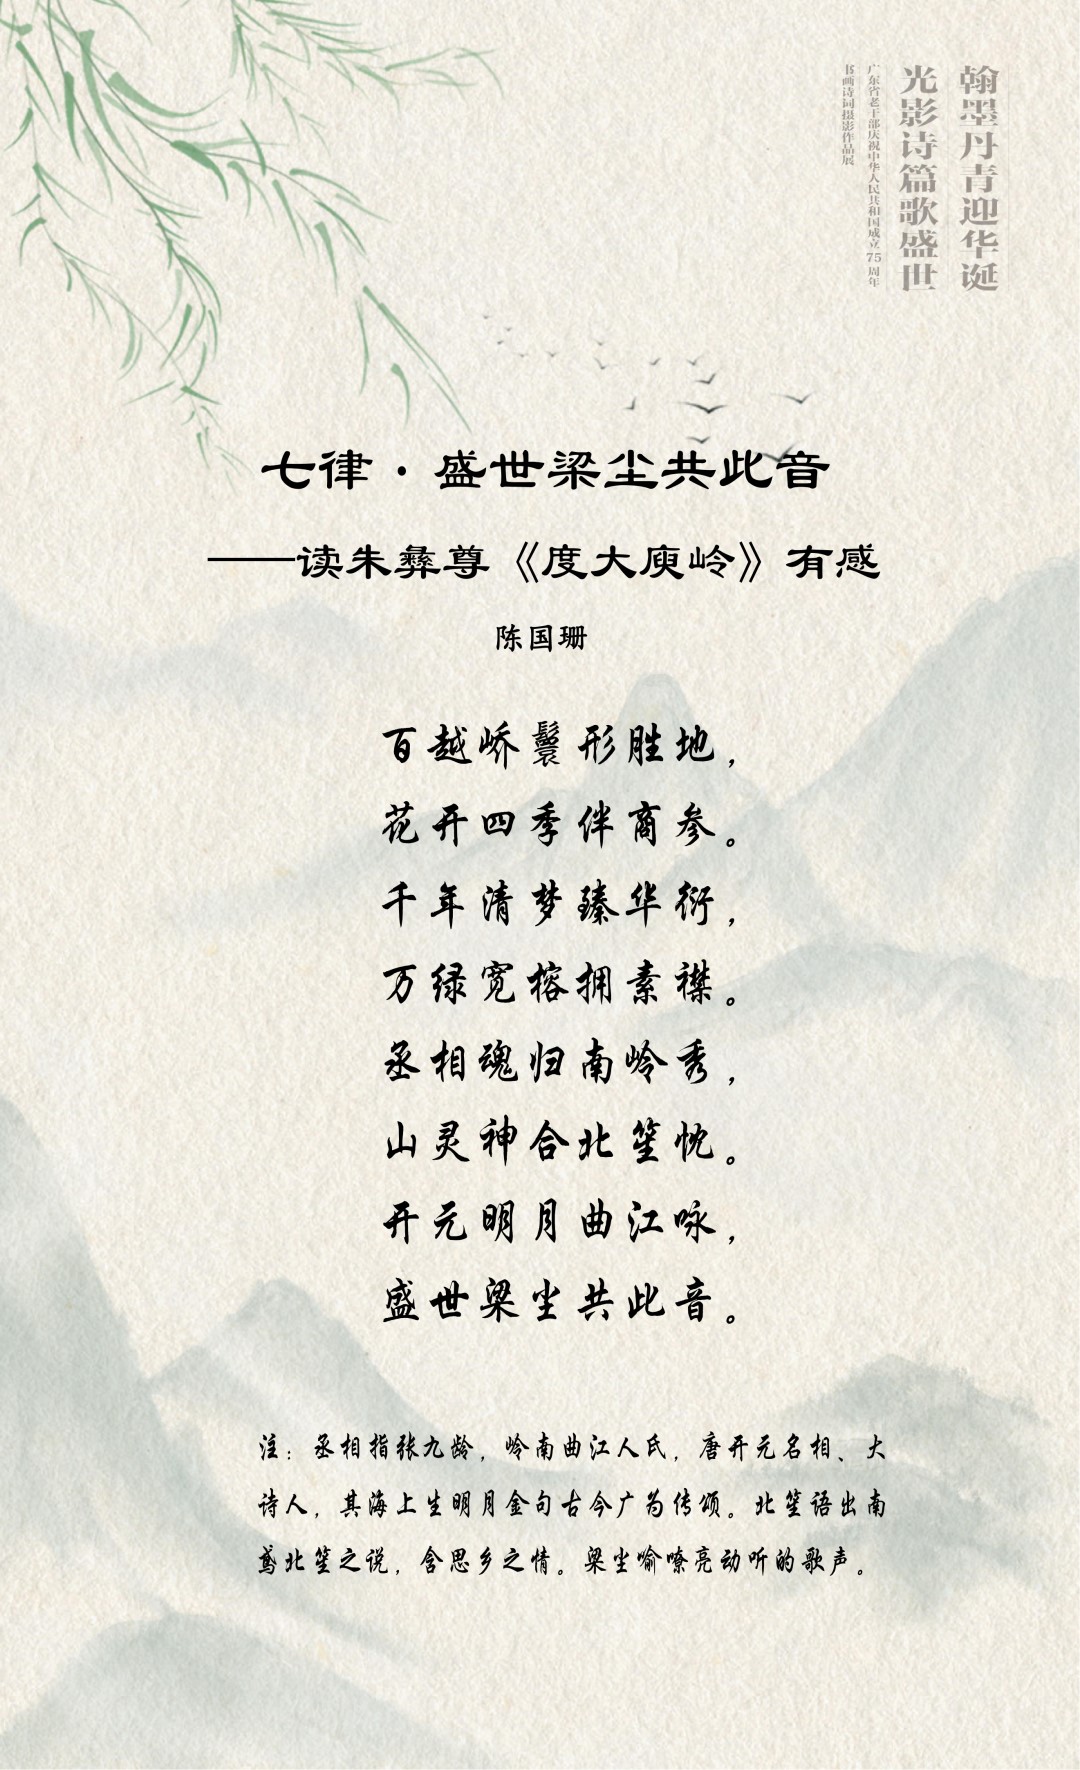 翰墨丹青迎华诞
光影诗篇歌盛世
广东省老干部庆祝中华人民共和国成立75周年
书画诗词摄影作品展
七律·盛世梁尘共此音
——读朱彝尊《度大庾岭》有感
陈国珊
百越峤鬟形胜地，
花开四季伴商参。
千年清梦臻华衍，
万绿宽榕拥素襟。
丞相魂归南岭秀，
山灵神合北笙忱。
开元明月曲江咏，
盛世梁尘共此音。
注：丞相指张九龄，岭南曲江人氏，唐开元名相、大
诗人，其海上生明月金句古今广为传颂。北笙语出南
鸢北笙之说，含思乡之情。梁尘喻嘹亮动听的歌声。